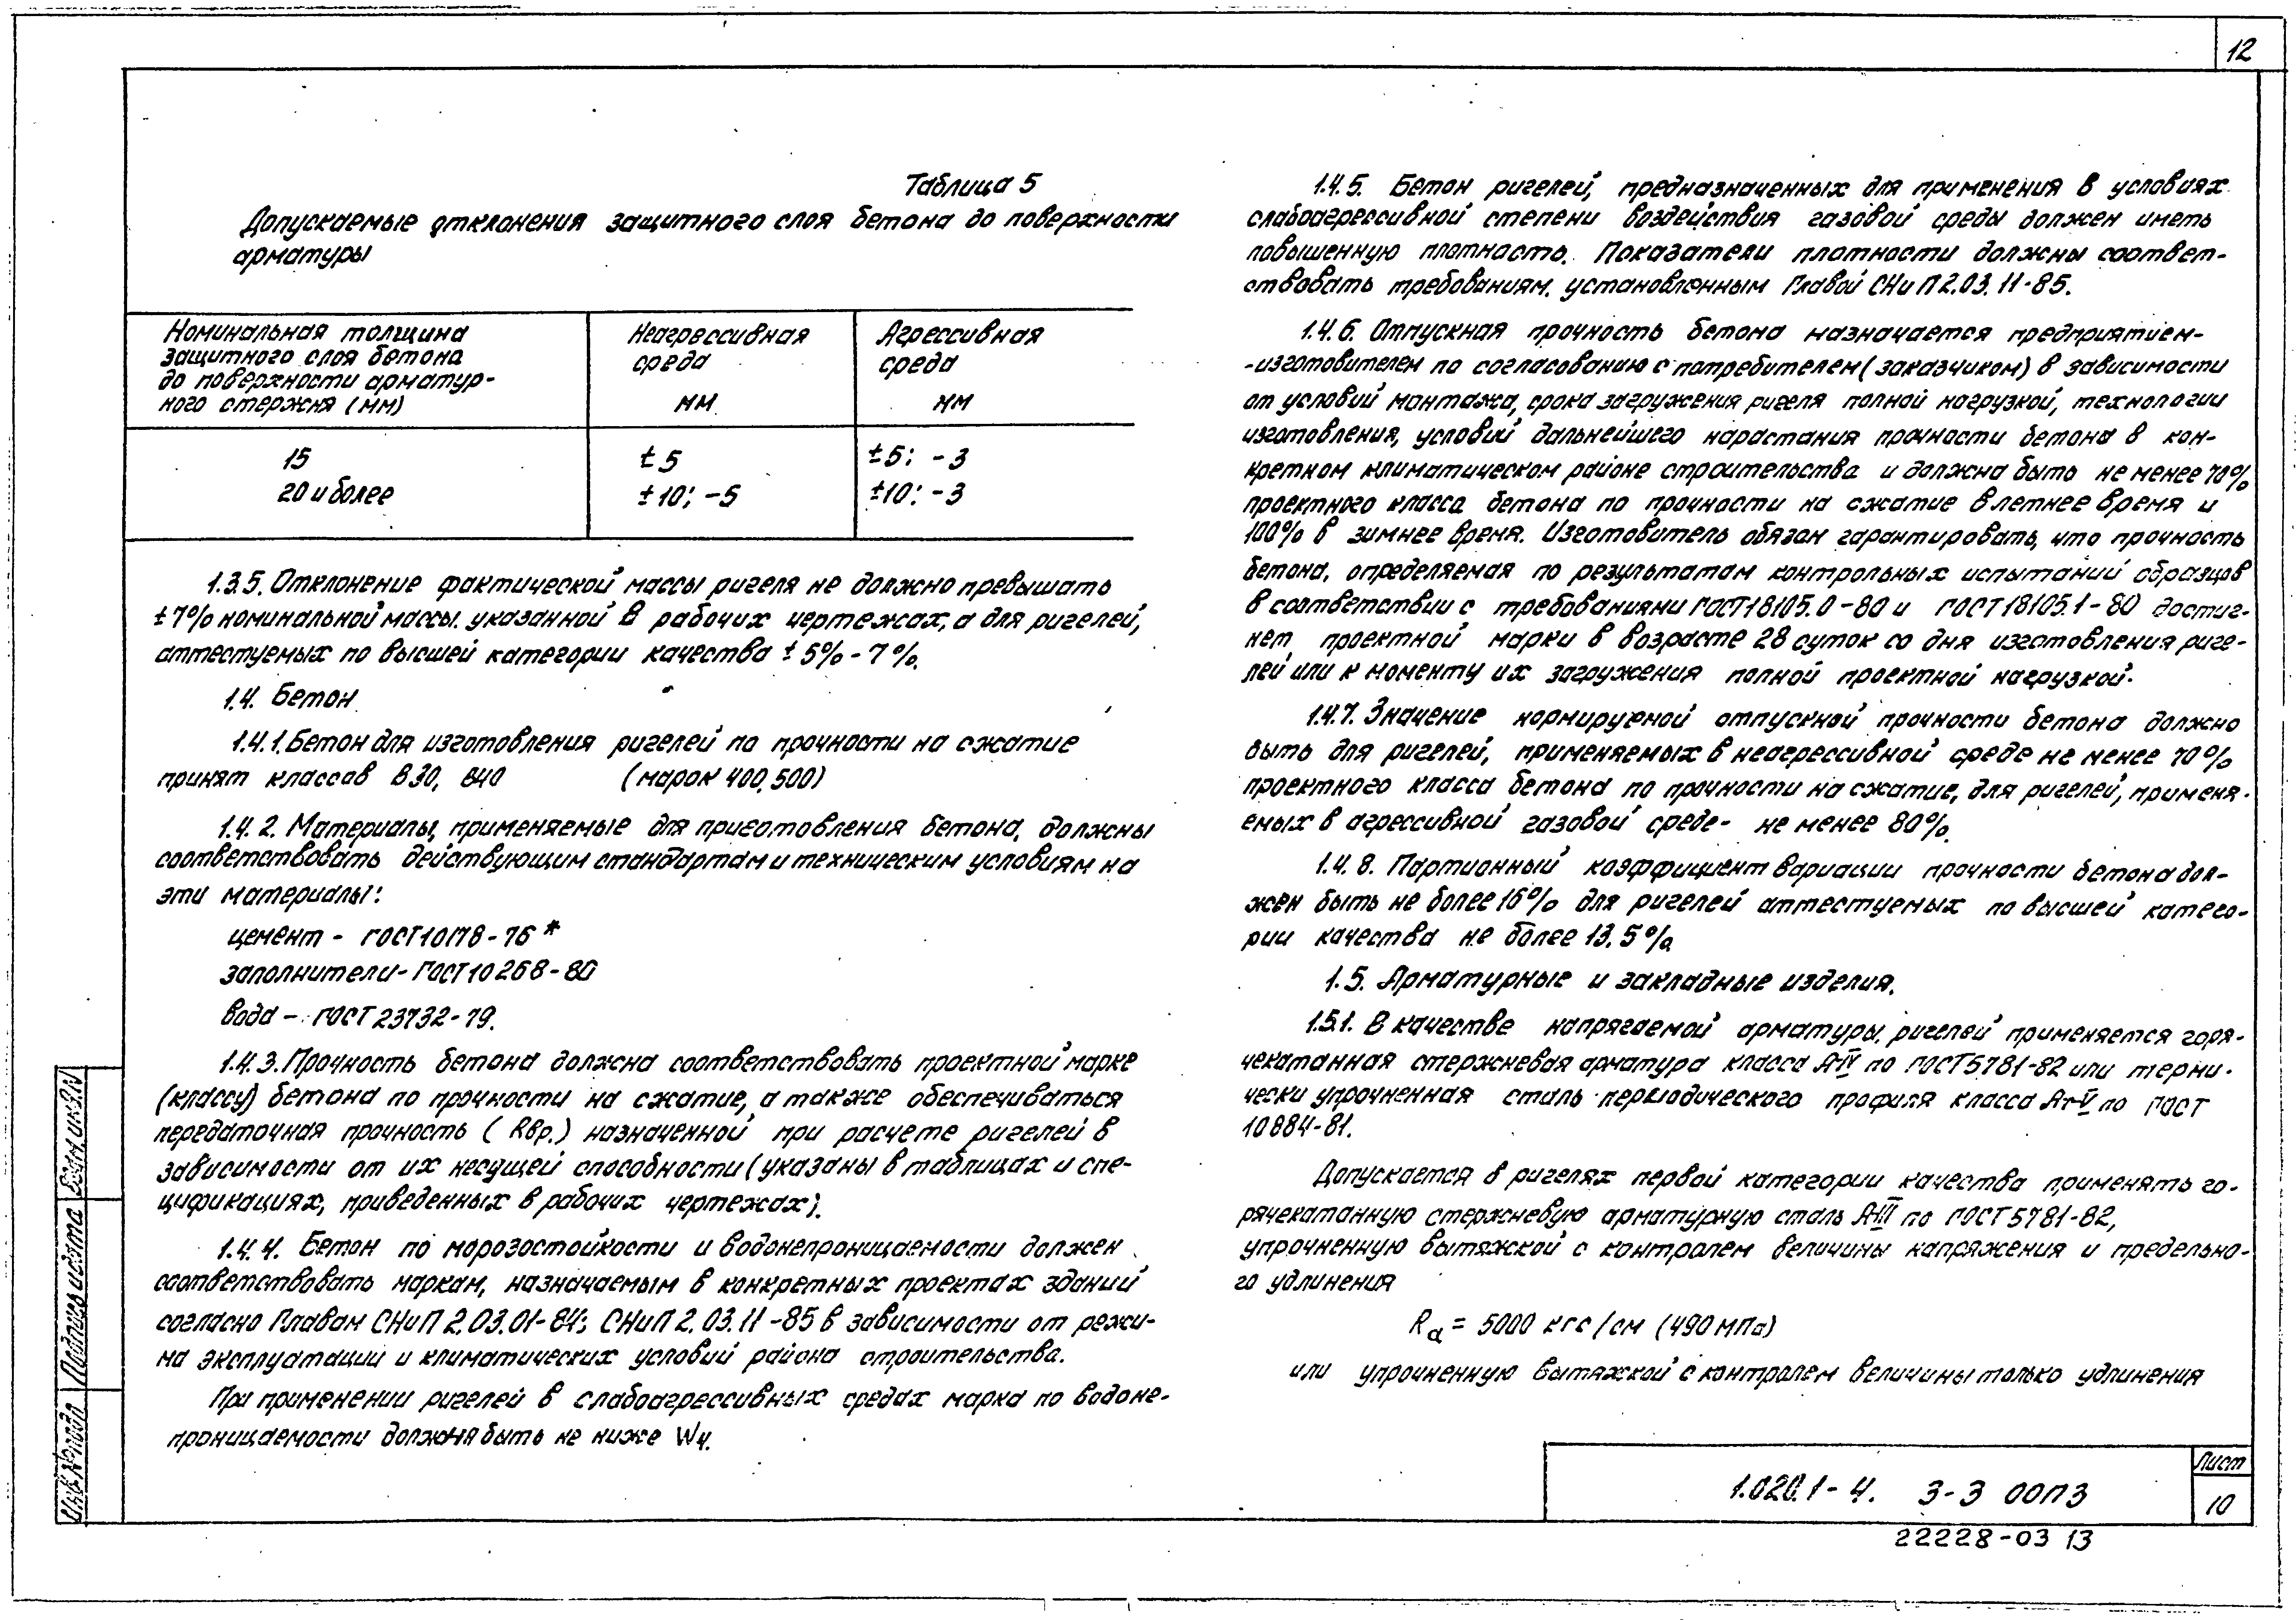 12
Таблица 5
Допускаемые отклонения защитного слоя бетона до поверхности
арматуры
Номинальная толщина
защитного слоя бетона
до поверхности арматур-
ного стержня (мм)
Неагрессивная
среда
мм
Агрессивная
среда
мм
15
± 5
±5; -3
20 и более
±10; -5
±10; -3
1.3.5. Отклонение фактической массы ригеля не должно превышать
±7% номинальной массы. указанной в рабочих чертежах, а для ригелей,
аттестуемых по высшей категории качества ± 5% - 7%.
1.4. Бетон
1.4.1. Бетон для изготовления ригелей по прочности на сжатие
принят классов В30, В40 (марок 400, 500)
1.4.2. Материалы, применяемые для приготовления бетона, должны
соответствовать действующим стандартам и техническим условиям на
эти материалы:
цемент - ГОСТ 10178-76*
заполнители - ГОСТ 10268-80
вода - ГОСТ 23732-79.
1.4.3. Прочность бетона должна соответствовать проектной марке
(классу) бетона по прочности на сжатие, а также обеспечиваться
передаточная прочность (Rвр.) назначенной при расчете ригелей в
зависимости от их несущей способности (указаны в таблицах и спе-
цификациях, приведенных в рабочих чертежах).
1.4.4. Бетон по морозостойкости и водонепроницаемости должен
соответствовать маркам, назначаемым в конкретных проектах зданий
согласно Главам СНиП 2.03.01-84; СНиП 2.03.11-85 в зависимости от режи-
ма эксплуатации и климатических условий района строительства.
При применении ригелей в слабоагрессивных средах марка по водоне-
проницаемости должна быть не ниже W4.
1.4.5. Бетон ригелей, предназначенных для применения в условиях
слабоагрессивной степени воздействия газовой среды должен иметь
повышенную плотность. Показатели плотности должны соответ-
ствовать требованиям. установленным Главой СНиП 2.03.11-85.
1.4.6. Отпускная прочность бетона назначается предприятием-
-изготовителем по согласованию с потребителем (заказчиком) в зависимости
от условий монтажа, срока загружения ригеля полной нагрузкой, технологии
изготовления, условий дальнейшего нарастания прочности бетона в кон-
кретном климатическом районе строительства и должна быть не менее 70%
проектного класса бетона по прочности на сжатие в летнее время и
100% в зимнее время. Изготовитель обязан гарантировать, что прочность
бетона, определяемая по результатам контрольных испытаний образцов
в соответствии с требованиями ГОСТ 18105.0-80 и ГОСТ 18105.1-80 достиг-
нет проектной марки в возрасте 28 суток со дня изготовления риге-
лей или к моменту их загружения полной проектной нагрузкой.
1.4.7. Значение нормируемой отпускной прочности бетона должно
быть для ригелей, применяемых в неагрессивной среде не менее 70%
проектного класса бетона по прочности на сжатие, для ригелей, применя-
емых в агрессивной газовой среде- не менее 80%.
1.4.8. Партионный коэффициент вариации прочности бетона дол-
жен быть не более 16% для ригелей аттестуемых по высшей катего-
рии качества не более 13.5%.
1.5. Арматурные и закладные изделия.
1.5.1. В качестве напрягаемой арматуры, ригелей применяется горя-
чекатанная стержневая арматура класса А-IV по ГОСТ 5781-82 или терми-
чески упрочненная сталь периодического профиля класса Ат-V по ГОСТ
10884-81.
Допускается в ригелях первой категории качества применять го-
рячекатанную стержневую арматурную сталь А-III по ГОСТ 5781-82,
упрочненную вытяжкой с контролем величины напряжения и предельно-
го удлинения
Ra = 5000 кгс/см (490 МПа)
или упрочненную вытяжкой с контролем величины только удлинения
Инв.№ подл. Подпись и дата Взам.инв.№
1.020.1-4. 3-3 00ПЗ
Лист
10
22228-03 13